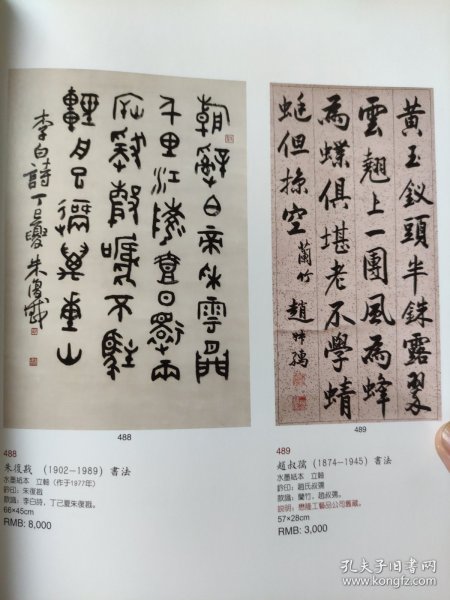 朝辤白帝采雲間
千里江陵壹日還兩
岸猨聲嗁不駐
輕舟已過萬重山
李白詩 丁巳夏 朱復戡
黃玉釵頭半銖露翠
雲翹上一團風為蜂
為蝶俱堪老不學蜻
蜓但掠空 蘭竹 趙叔孺
488
489
488
朱復戡 (1902-1989) 書法
水墨紙本 立軸 (作于1977年)
鈐印:朱復戡
款識:李白詩,丁巳夏朱復戡。
66×45cm
RMB: 8,000
489
趙叔孺 (1874-1945) 書法
水墨紙本 立軸
鈐印:趙氏叔孺
款識:蘭竹,趙叔孺。
說明:懋隆工藝品公司舊藏。
57×28cm
RMB: 3,000
孔夫子旧书网
www.kongfz.com